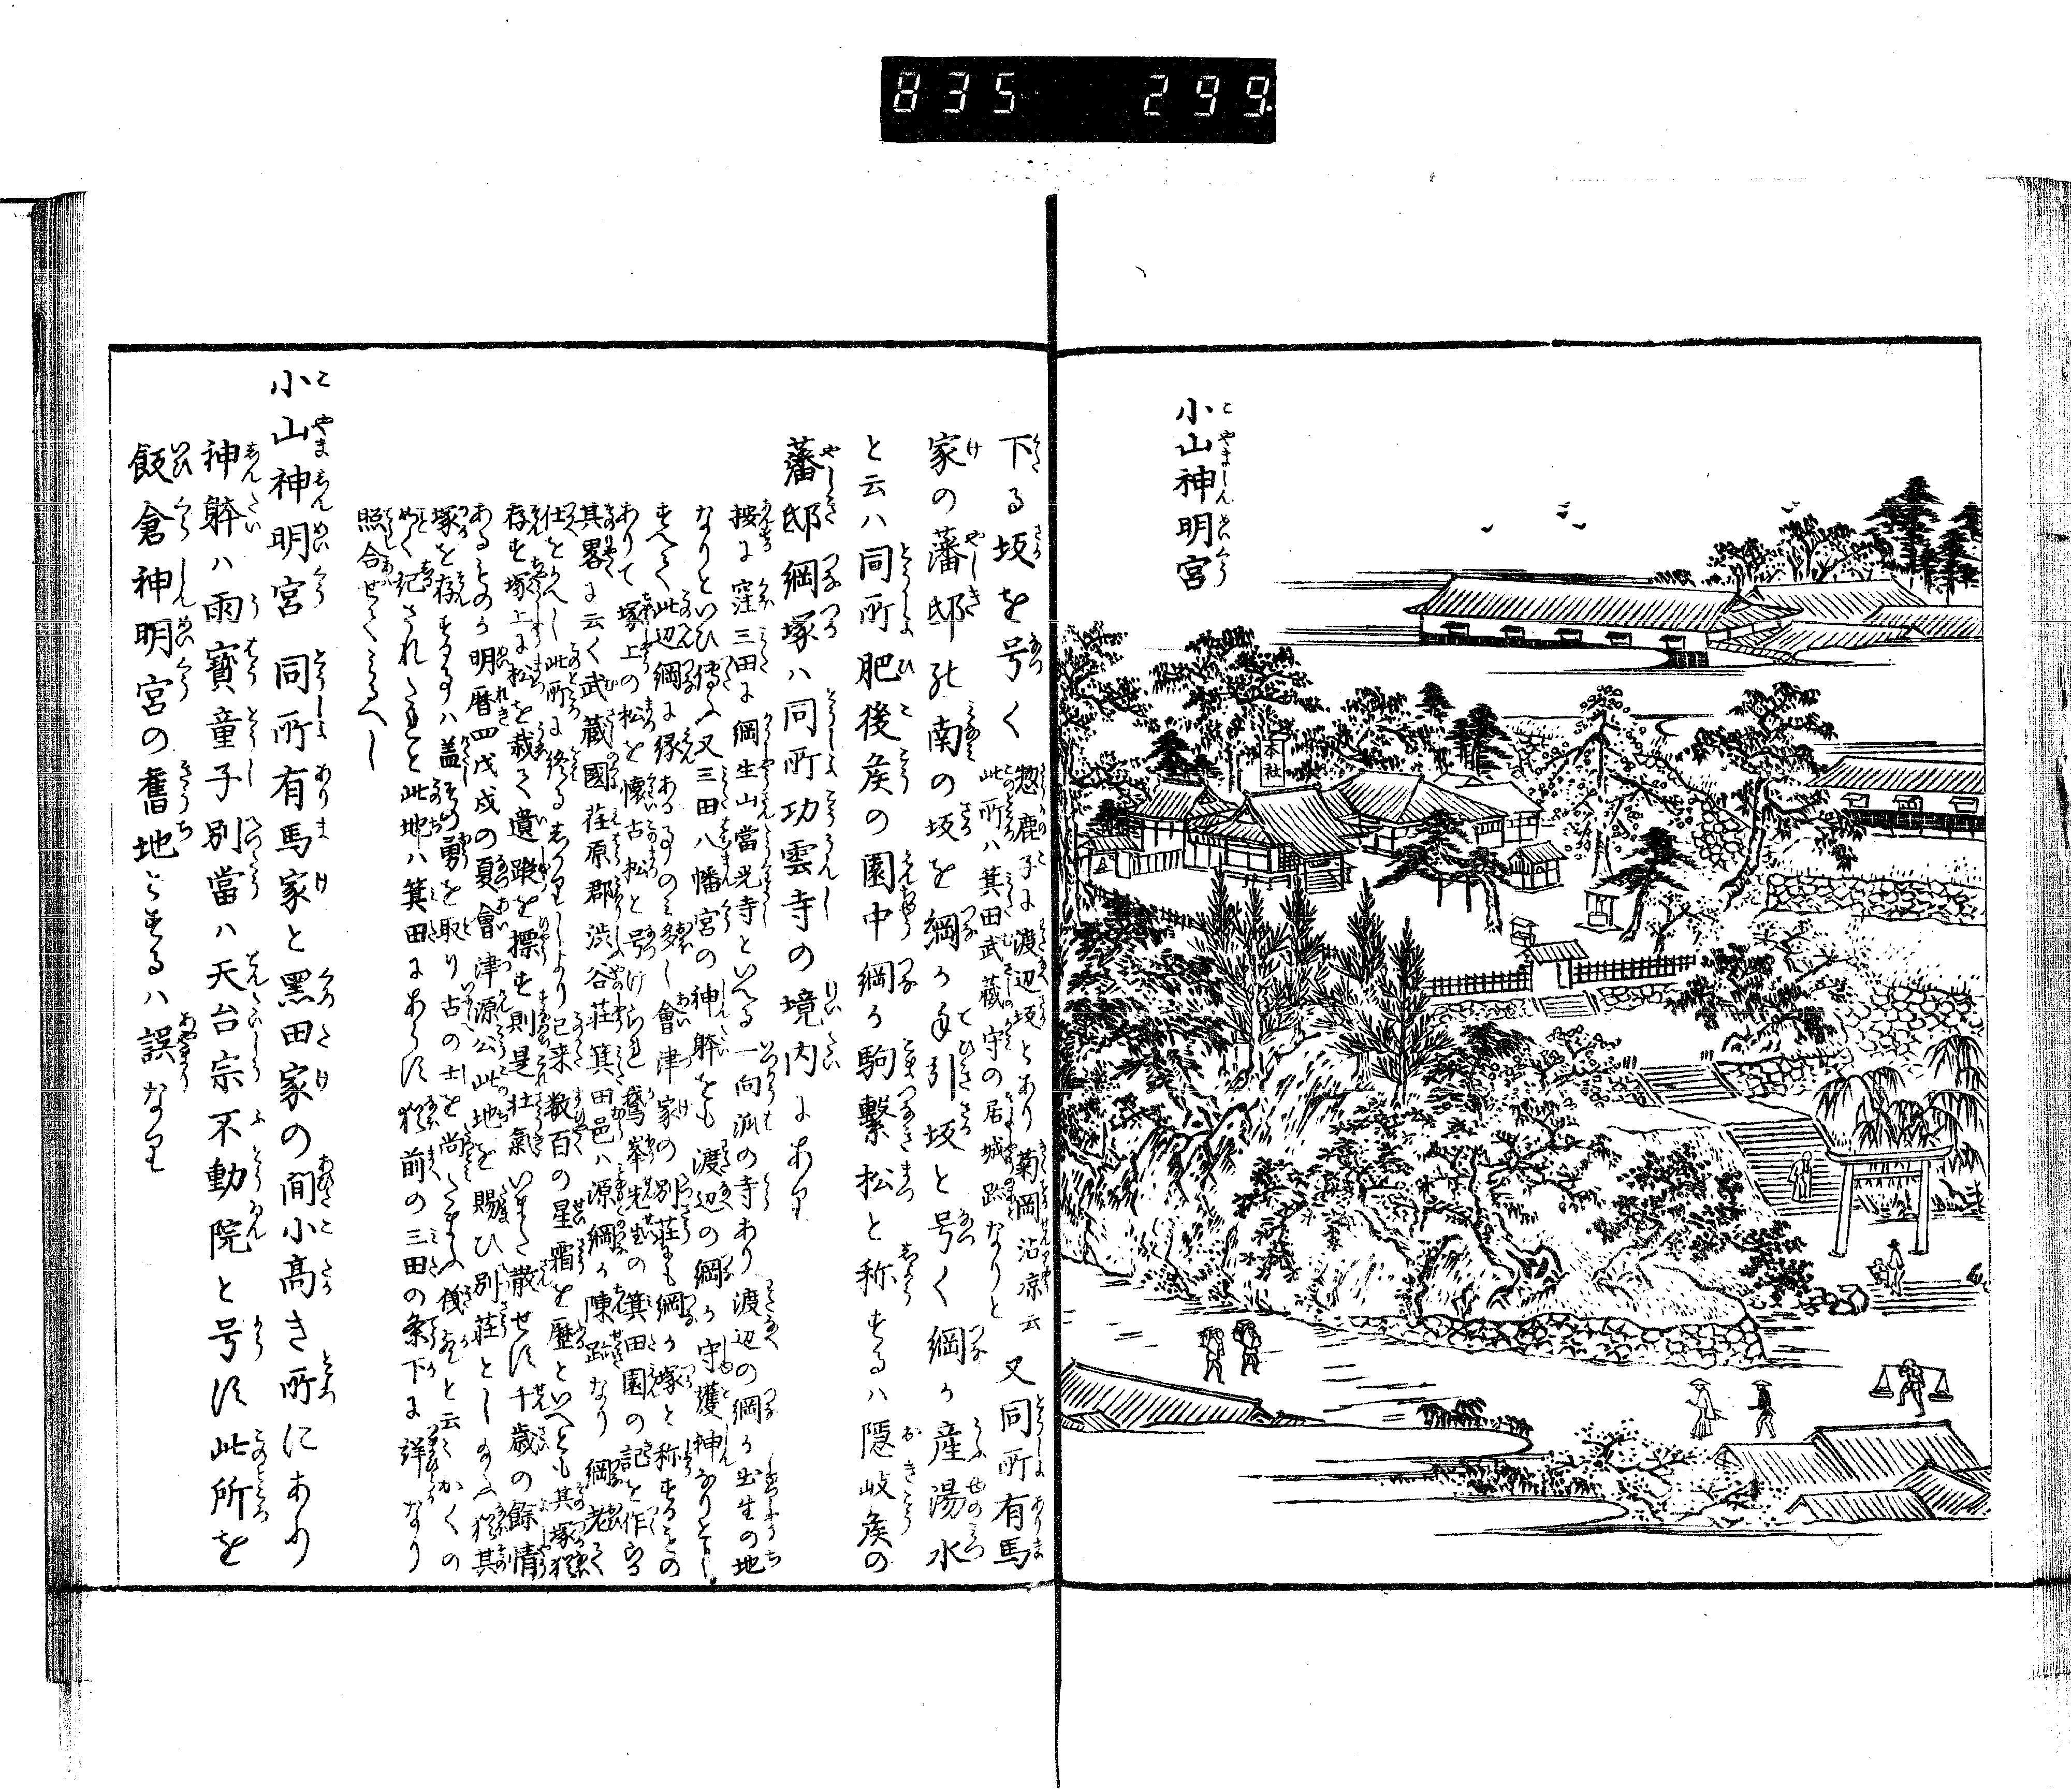 835 299
小山神明宮
本社
下る坂を号く 惣鹿子に渡辺坂とあり菊岡沾凉云
此所ハ箕田武蔵守の居城跡なりと
又同所有馬
家の藩邸の南の坂を綱か手引坂と号く綱か産湯水
と云ハ同所肥後矦の園中綱か駒繋松と称するハ隠岐矦の
藩邸綱塚ハ同所功雲寺の境内にあり
按に窪三田に綱生山當光寺といへる一向派の寺あり渡辺の綱か出生の地
なりといひ傳ふ又三田八幡宮の神躰をも渡辺の綱か守護神なりと
すへて此辺綱に縁ある事のミ多し會津家の別荘にも綱か塚と称するもの
ありて塚上の松を懐古松と号けられ鵞峯先生の箕田園の記を作る
其畧に云く武蔵國荏原郡渋谷荘箕田邑ハ源綱か陳跡なり綱老て
仕をかへし此所に終るしかりしより已来数百の星霜を歴といへとも其塚猶
存す塚上に松を栽て遺蹤を標す則是壮氣いまた散せす千歳の餘情
あるものか明暦四戊戌の夏會津源公此地を賜ひ別荘とし給ふ猶其
塚を存するハ盖その勇を取り古の士を尚ひたまふ儀なりと云々かくの
如く記されたれと此地ハ箕田にあらす猶前の三田の条下に詳なり
照合せてみるへし
小山神明宮 同所有馬家と黒田家の間小高き所にあり
神躰ハ雨寳童子別當ハ天台宗不動院と号す此所を
飯倉神明宮の舊地とするハ誤なり